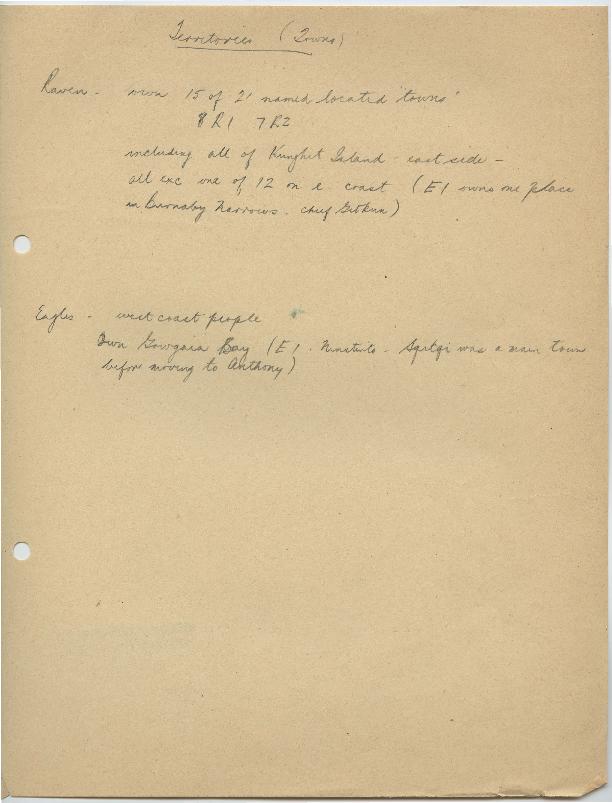 Territories (Towns)
Raven - own 15 of 21 named located "towns"
8 R1 7 R2
including all of Kunghit Island - east side -
all exc one of 12 on e. coast (E1 owns one place
in Burnaby Narrows. chief Gitkun)
Eagles - west coast people
Own Gowgaia Bay (E1. Ninstints - was a main town
before moving to Anthony)